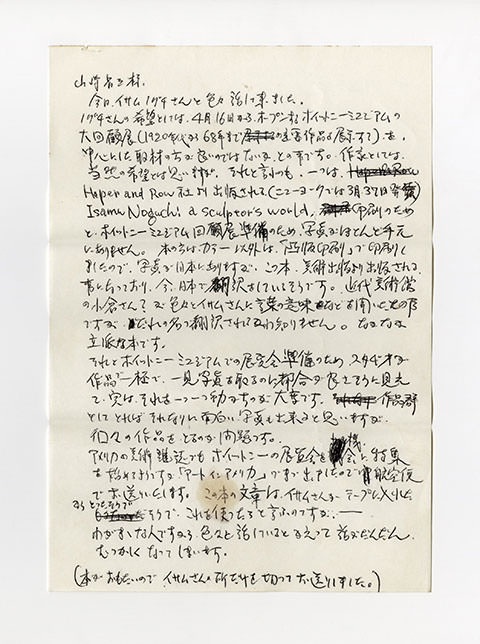 山崎省三様
今日、イサム ノグチさんと色々話て来ました。
ノグチさんの希望としては、4月16日からオープンするホイットニーミュージアムの
大回顧展(1920年代から68年まで 作品を展示す)を、
中心にした取材の方が良いのではないか、との事です。作家としては、
当然の希望とは思いますが、それと言うのも、一つは、
Haper and Row社より出版される(ニューヨークでは3月
Isamu Noguchi a sculptor's world, 印刷のため
と、ホイットニーミュジアム回顧展準備のため、写真がほとんど手元
にありません。本の方はカラー以外は、「凸版印刷」で印刷し
ましたので、写真が日本にありますが、この本、美術出版より出版される
事になっており、今、日本で翻訳をしているそうです。近代美術館
の小倉さん 色々とイサムさんに言葉の意味などを聞いたもの
ですが、だれの名で翻訳されるかわかりません。なかなか
立派な本です。
それとホイットニーミュジアムでの展覧会準備のため、スタジオが
作品一極で、一見写真を取るのに都合が良さそうに見え
て、実は、それも一つ一つ動かすのが大事です。作品群
としてとれば それなりに面白い写真も出来ると思いますが、
個々の作品をとるのが問題です。
アメリカの美術雑誌でもホイットニーの展覧会を機会に特集
を始めてようすが「アートインアメリカ」がまず出ましたので航空便
でお送りいたします。この本の文章は、イサムさんがテープに入れた
そうで、これを使ったらと言ふのですが、——
わがままな人ですから 色々と話していると かえって 話がだんだん
むつかしくなってしまいます。
(本がおもたいので イサムさんの所だけを切ってお送りしました。)